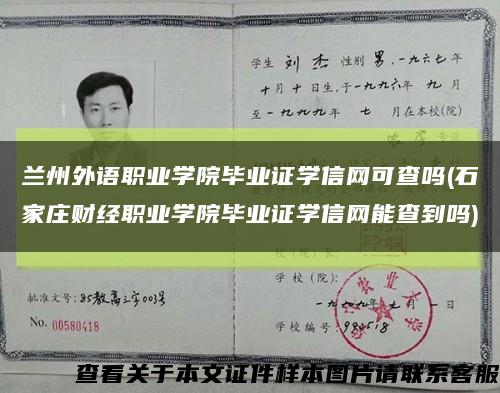 学生 刘杰 性别 男,一九六七年
十月十日生,于一九九六年 九月
至一九九九年 七月在本校(院)
农学 专业
兰州外语职业学院毕业证学信网可查吗(石
家庄财经职业学院毕业证学信网能查到吗)
校(院)长:
学校(院):
批准文号:85教高三字003号
No. 00580418
学校编号:
查看关于本文证件样本图片请联系客服